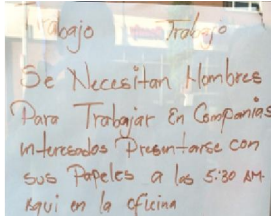 Trabajo Trabajo
Se Necesitan Hombres
Para Trabajar En Companias
interesados Presentarse con
sus Papeles a las 5:30 AM.
Aqui en la oficina